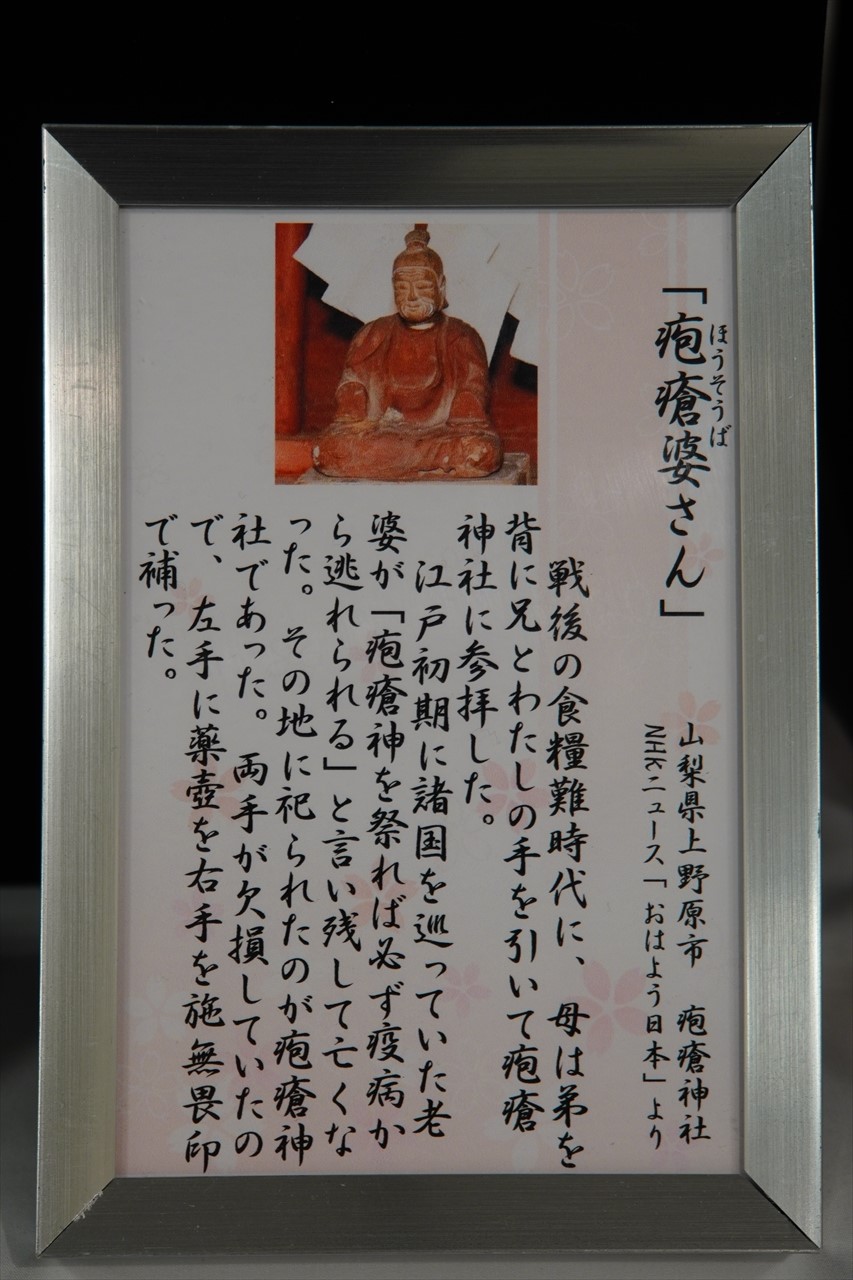 「疱瘡婆さん」
ほうそうば
山梨県上野原市　疱瘡神社
NHKニュース「おはよう日本」より
戦後の食糧難時代に、母は弟を
背に兄とわたしの手を引いて疱瘡
神社に参拝した。
江戸初期に諸国を巡っていた老
婆が「疱瘡神を祭れば必ず疫病か
ら逃れられる」と言い残して亡くな
った。その地に祀られたのが疱瘡神
社であった。両手が欠損していたの
で、左手に薬壺を右手を施無畏印
で補った。